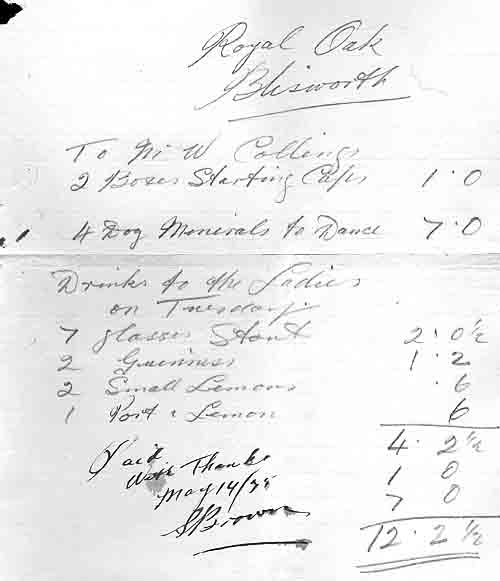 Royal Oak
Blisworth
To Mr W Collings
2 Boxes Starting Caps 1 · 0
4 Dog Minerals to Dance 7 · 0
Drinks to the Ladies
on Tuesday
7 glasses Stout 2 · 0½
2 Guinness 1 · 2
2 Small Lemons · 6
1 Port & Lemon 6
4 · 2½
1 0
7 0
12 · 2½
Paid
With Thanks
May 14/35
S Brown